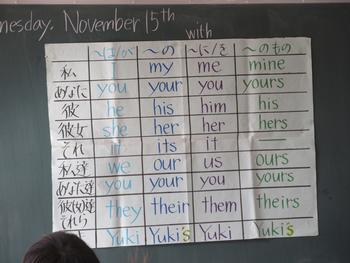 nesday. November 15th
with
~は/が ~の ~に/を ~のもの
私 my me mine
あなた you your you yours
彼 he his him his
彼女 she her her hers
それ it its it —
私達 we our us ours
あなた達 you your you yours
彼(女)達 それら they their them theirs
Yuki Yuki's Yuki Yuki's